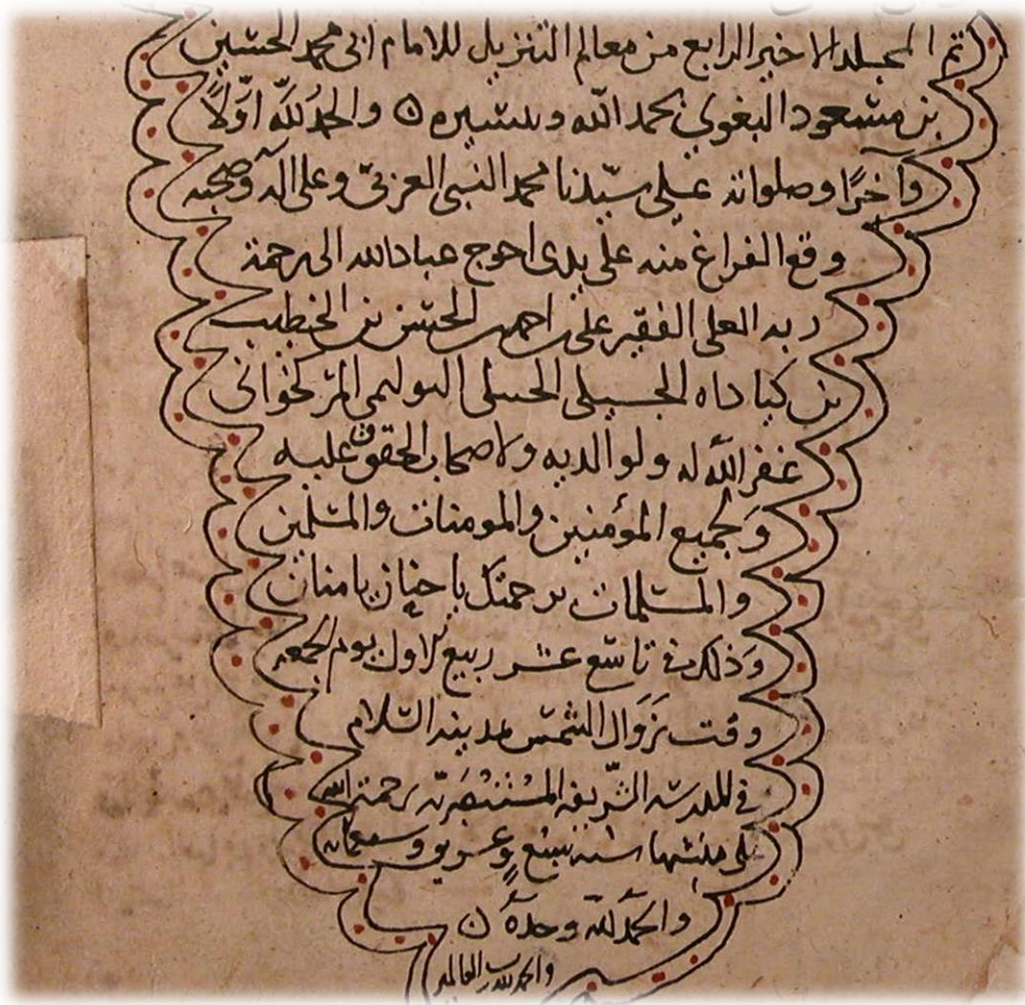 تم المجلد الاخير الرابع من معالم التنزيل للامام ابى محمد الحسين
بن مسعود البغوي بحمد الله وتيسيره ن والحمد لله اوّلاً
وآخرًا وصلواته على سيّدنا محمد النبى العربىّ وعلى اله وصحبه
وقع الفراغ منه على يدى احوج عباد الله الى رحمة
ربه العلى الفقير على بن احمد بن الحسن بن الخطيب
بن كياداه الجيلى الحنبلى
غفر الله له ولوالديه ولاصحاب الحقوق عليه
وَلجميع المؤمنين والمومنات والمسلمين
والمسلمات برحمتك ياحنان يامنان
وَذلك فى تاسع عشر ربيع الاول يوم الجمعه
وقت زَوَال الشمس بمدينة السّلام
فى المدرسه الشّريفه المُسْتَنْصَريّه رحمة الله
على منشئها سنه سَبْع وعشرين وسبعمائه
والحمْد للّه وحدهُ ن
والحمد لله رب العالمين